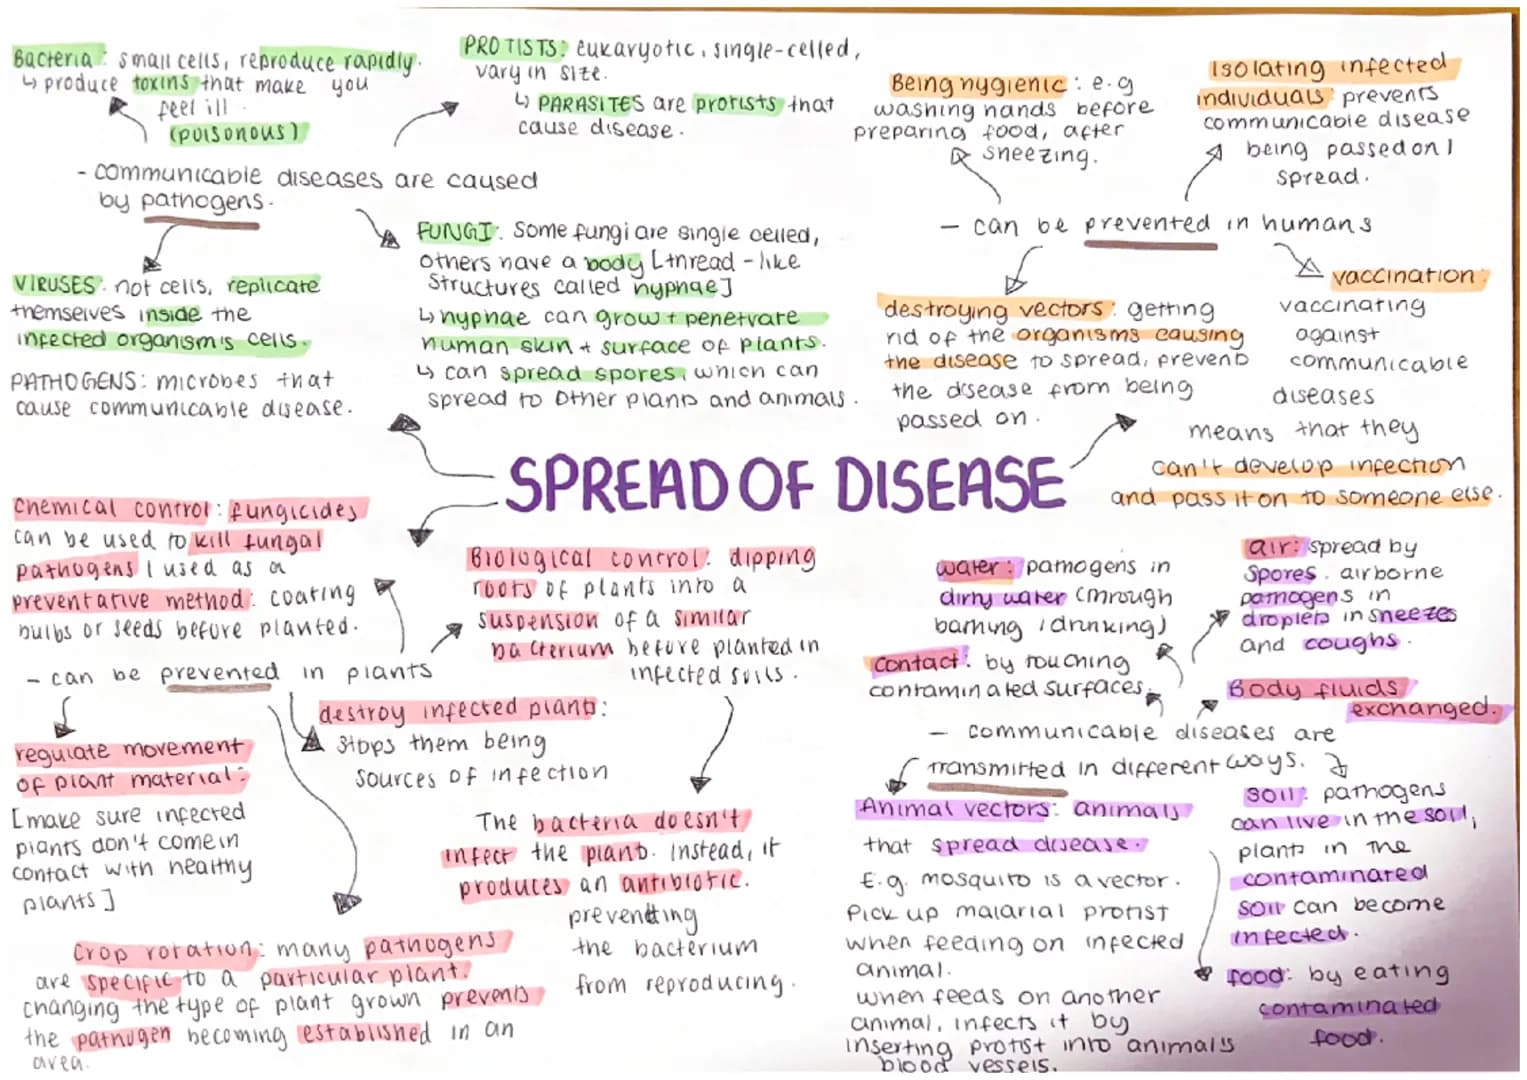 Bacteria: small cells, reproduce rapidly.
↳ produce toxins that make you
feel ill.
(poisonous)
PROTISTS: eukaryotic, single-celled,
vary in size.
↳ PARASITES are protists that
cause disease.
- communicable diseases are caused
by pathogens.
VIRUSES: not cells, replicate
themselves inside the
infected organism's cells.
PATHOGENS: microbes that
cause communicable disease.
FUNGI: Some fungi are single celled,
others have a body [thread-like
structures called hyphae]
↳ hyphae can grow + penetrate
human skin + surface of plants.
↳ can spread spores, which can
spread to other plants and animals.
Being hygienic: e.g
washing hands before
preparing food, after
sneezing.
Isolating infected
individuals: prevents
communicable disease
being passed on /
spread.
- can be prevented in humans
destroying vectors: getting
rid of the organisms causing
the disease to spread, prevents
the disease from being
passed on.
vaccination:
vaccinating
against
communicable
diseases
means that they
can't develop infection
and pass it on to someone else.
SPREAD OF DISEASE
Chemical control: fungicides
can be used to kill fungal
pathogens / used as a
preventative method: coating
bulbs or seeds before planted.
- can be prevented in plants
Biological control: dipping
roots of plants into a
suspension of a similar
bacterium before planted in
infected soils.
destroy infected plants:
stops them being
sources of infection
regulate movement
of plant material:
[make sure infected
plants don't come in
contact with healthy
plants]
The bacteria doesn't
infect the plants. instead, it
produces an antibiotic.
preventing
the bacterium
from reproducing.
Crop rotation: many pathogens
are specific to a particular plant.
changing the type of plant grown prevents
the pathogen becoming established in an
area.
water: pathogens in
dirty water (through
bathing / drinking)
contact: by touching
contaminated surfaces.
air: spread by
spores. airborne
pathogens in
droplets in sneezes
and coughs.
Body fluids
exchanged.
- communicable diseases are
transmitted in different ways.
Animal vectors: animals
that spread disease.
E.g. mosquito is a vector.
Pick up malarial protist
when feeding on infected
animal.
when feeds on another
animal, infects it by
inserting protist into animal's
blood vessels.
soil: pathogens
can live in the soil,
plants in the
contaminated
soil can become
infected.
food: by eating
contaminated
food.